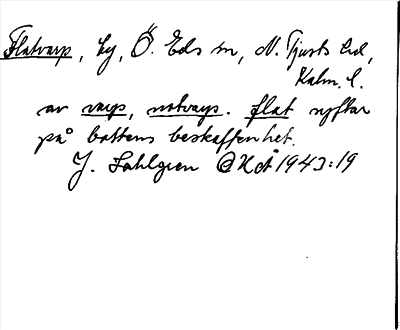 Flatvarp, by, Ö. Eds sn, N. Tjusts hd,
Kalm. l.
av varp, notvarp. flat syftar
på bottens beskaffenhet.
J. Sahlgren OKÅ 1943:19